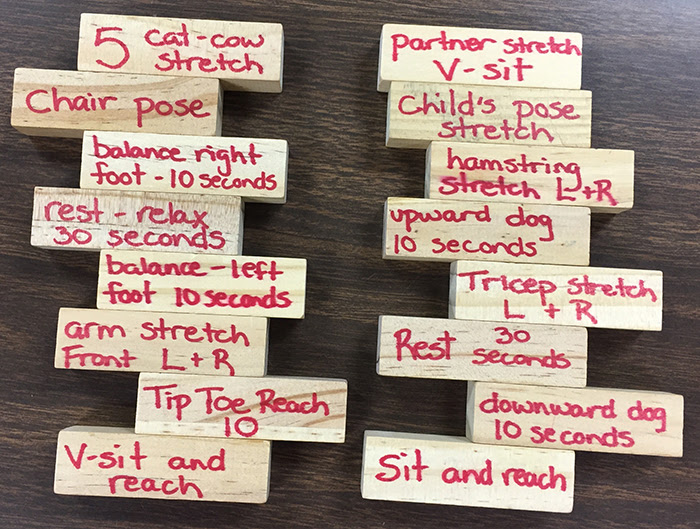 5 cat-cow
stretch
Chair pose
balance right
foot - 10 seconds
rest - relax
30 seconds
balance - left
foot 10 seconds
arm stretch
Front L + R
Tip Toe Reach
10
V-sit and
reach
partner stretch
V-sit
Child's pose
stretch
hamstring
stretch L + R
upward dog
10 seconds
Tricep stretch
L + R
Rest 30
seconds
downward dog
10 seconds
Sit and reach